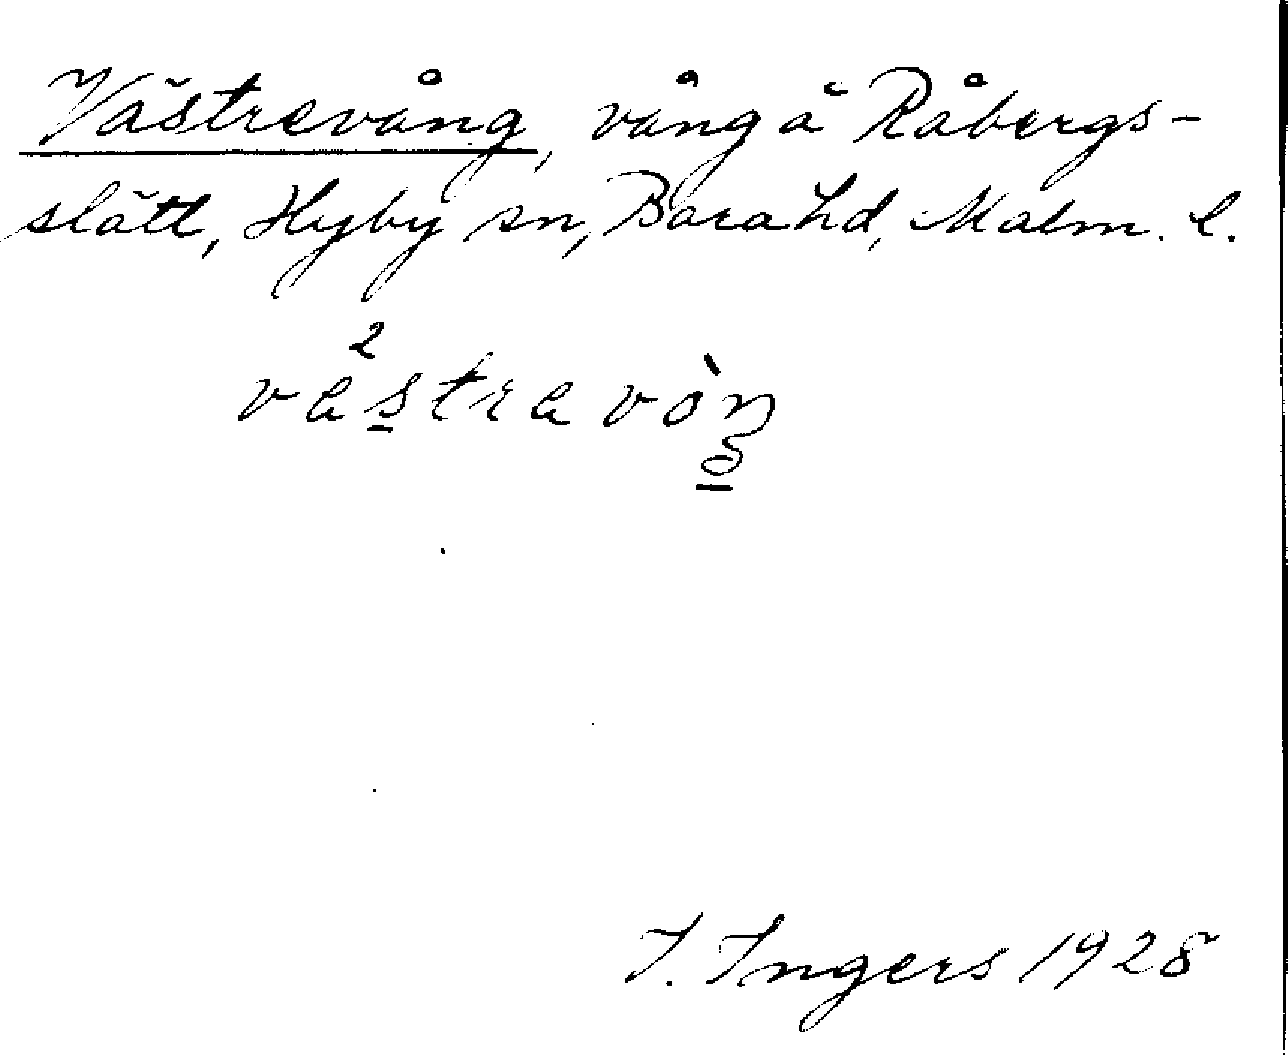 Västrevång, vång å Råbergs-
slätt, Hyby sn, Bara hd, Malm. l.
I. Ingers 1928